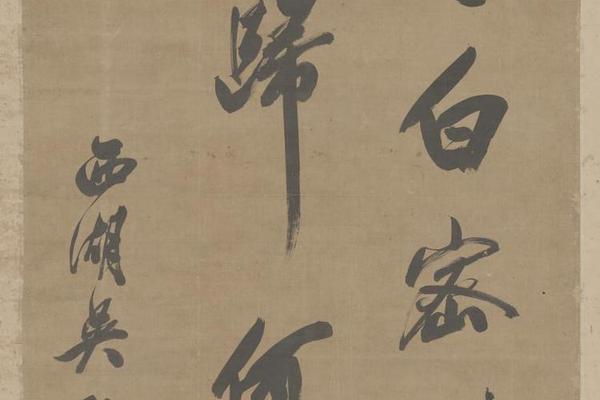 白密
歸何
西湖吳